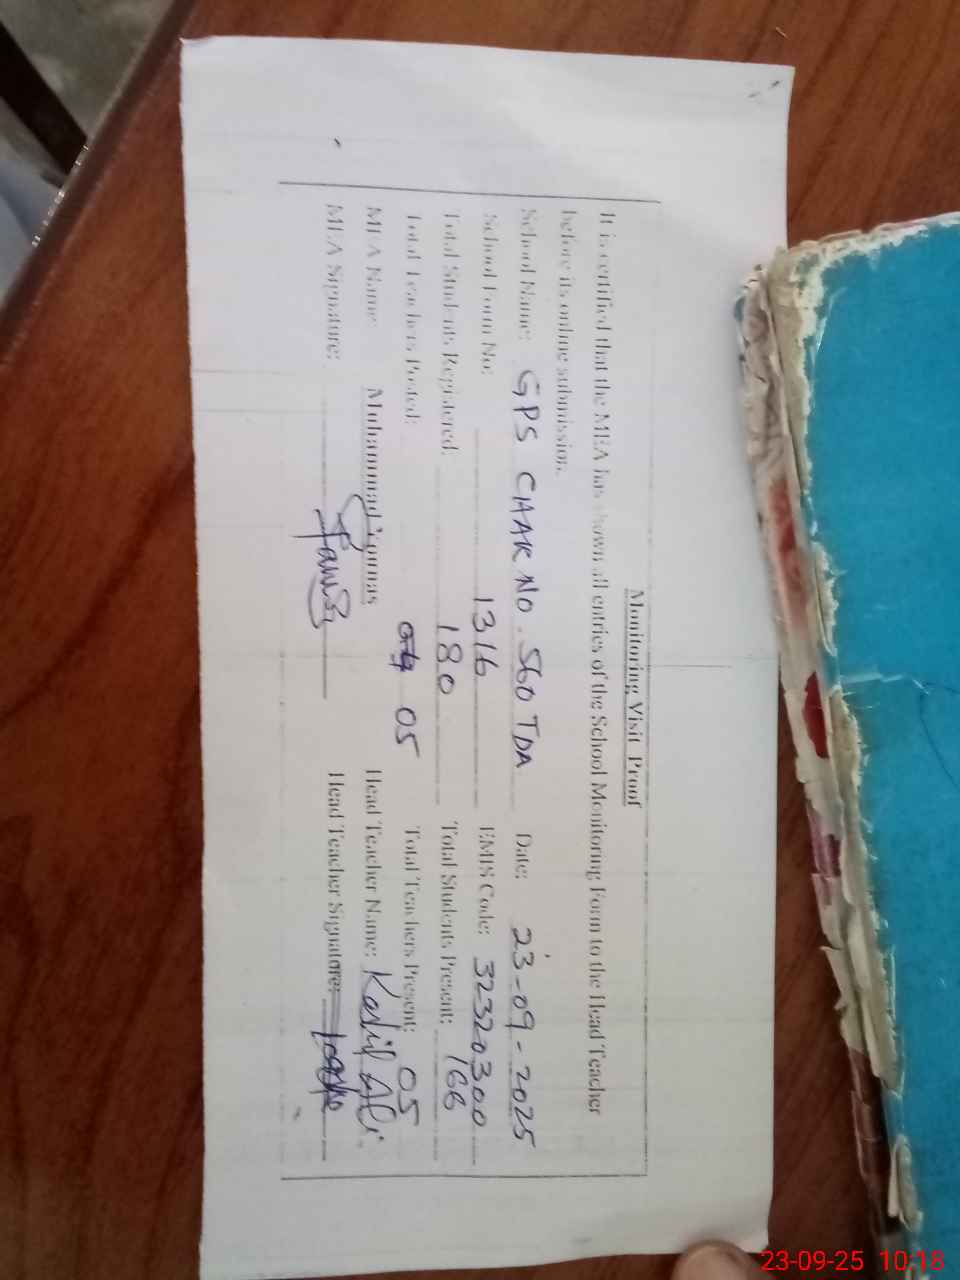 Monitoring Visit Proof
It is certified that the MEA has shown all entries of the School Monitoring Form to the Head Teacher
before its online submission.
School Name: GPS CHAK NO. 560 TDA Date: 23-09-2025
School Form No: 1316 EMIS Code: 32320300
Total Students Registered: 180 Total Students Present: 166
Total Teachers Posted: 05 Total Teachers Present: 05
MEA Name: Muhammad Younas Head Teacher Name: Kashif Ali
MEA Signature: Head Teacher Signature:
23-09-25 10:18